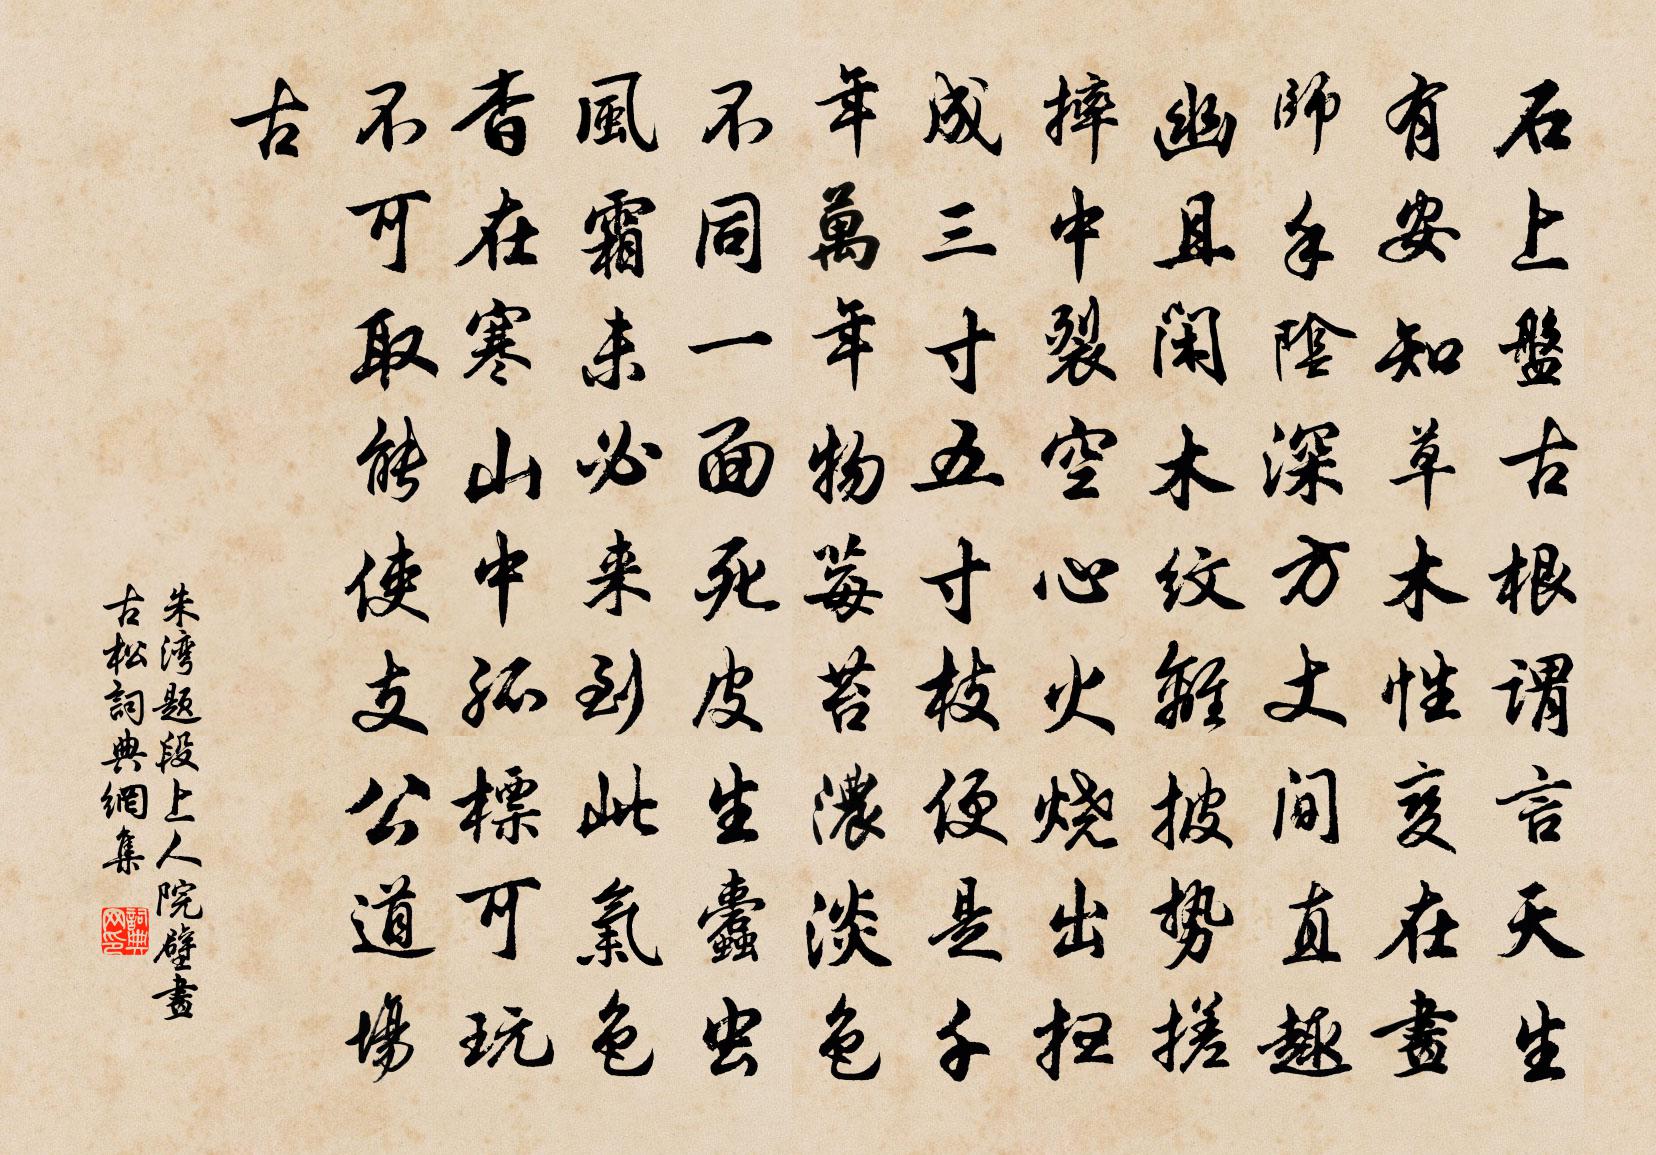 石上盤古根謂言天生
有安知草木性変在畫
師手陰深方丈间直趣
幽且闲木纹離披势搓
摔中裂空心火烧出扭
成三寸五寸枝便是千
年萬年物莓苔濃淡色
不同一面死皮生蠹虫
風霜未必来到此氣色
杳在寒山中孤標可玩
不可取能使支公道場
古
朱湾题段上人院壁畫
古松詞典網集
詞典网印